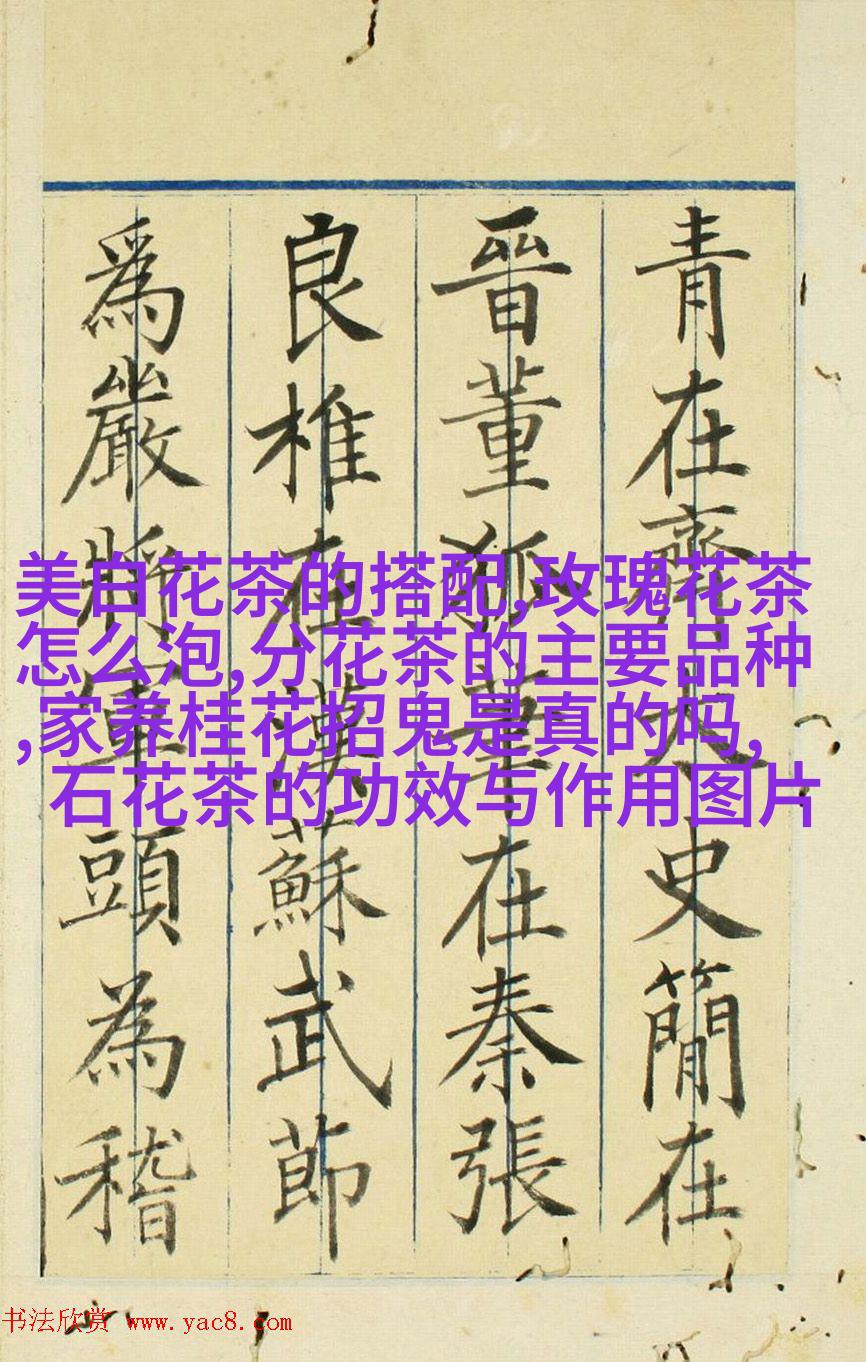 青在齊太史簡在
晉董狐筆在秦張
良椎在漢蘇武節
爲嚴將軍頭為稽
美白花茶的搭配,玫瑰花茶
怎么泡,分花茶的主要品种
,家养桂花招鬼是真的吗,
石花茶的功效与作用图片
书法欣赏 www.yac8.com